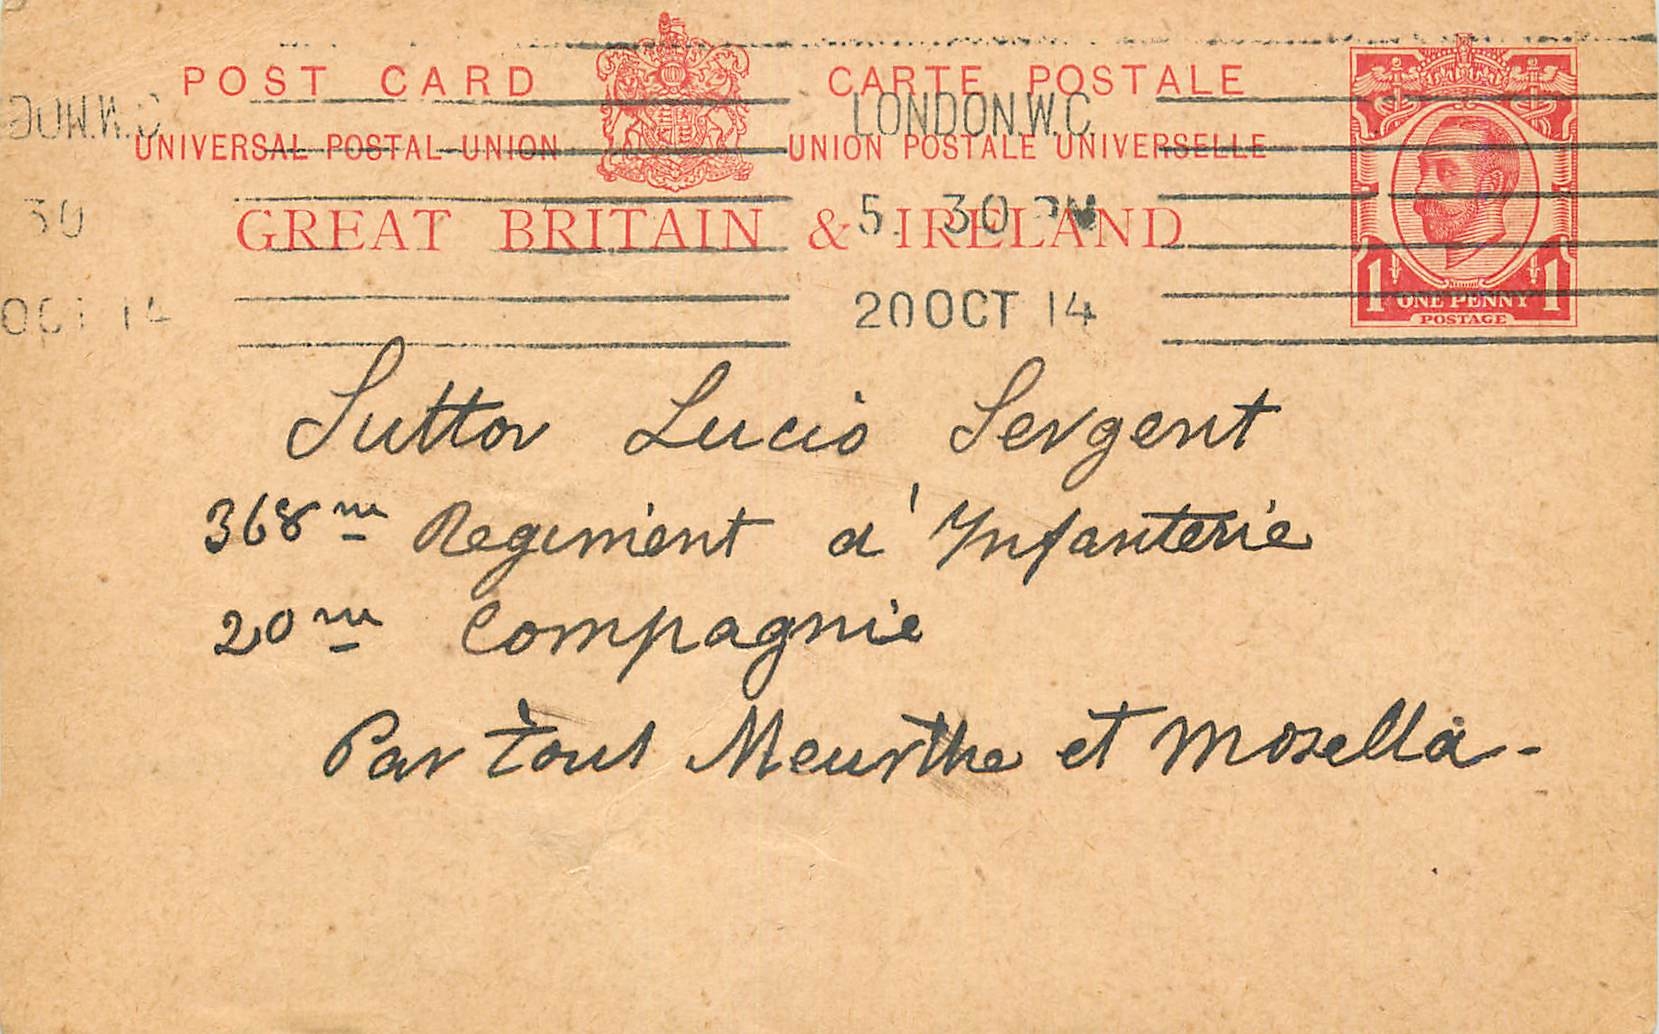 POST CARD CARTE POSTALE
LONDON.W.C.
UNIVERSAL POSTAL UNION UNION POSTALE UNIVERSELLE
5. 30 PM
GREAT BRITAIN & IRELAND
20 OCT 14
1 ONE PENNY 1
POSTAGE
30
OCT 14
Sutton Lucio Sergent
368me Regiment d'Infanterie
20me Compagnie
Par Toul Meurthe et Mosella-